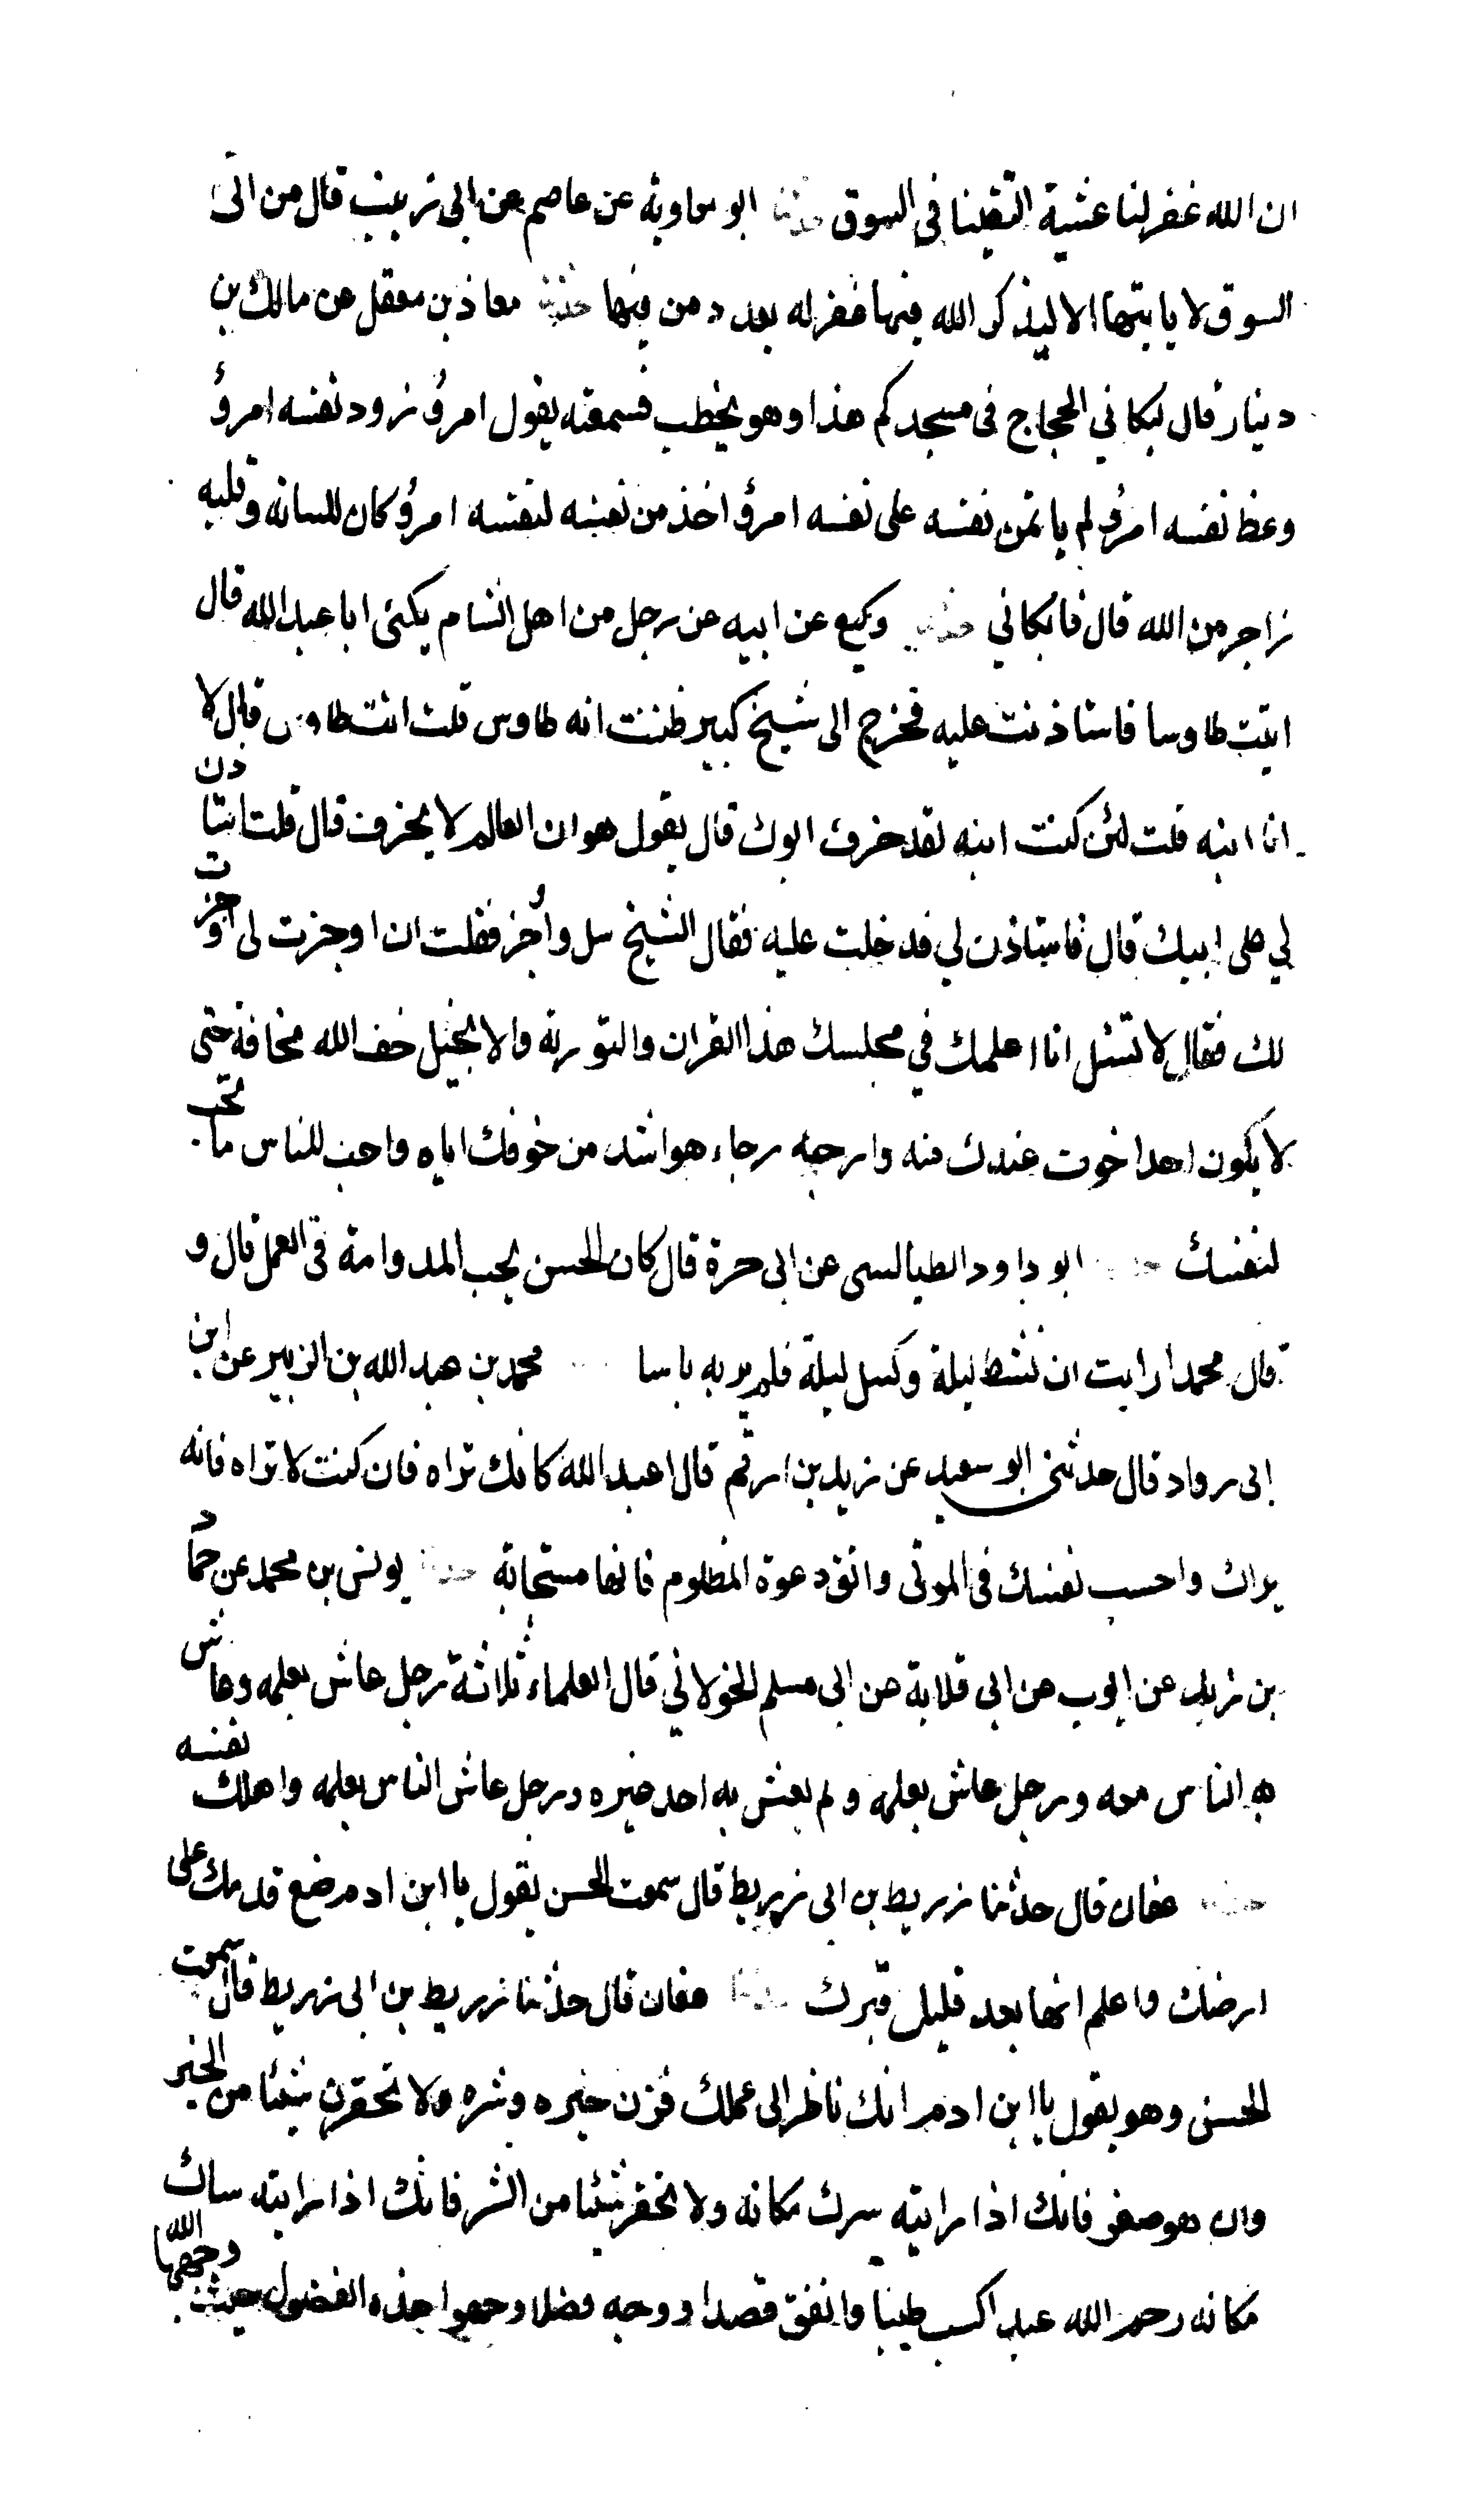 ان الله غفر لنا عشية التقينا في السوق حدثنا ابو معاوية عن عاصم عن ابي زينب قال من اتى
السوق لا ياتيها الا ليذكر الله فيها غفر له بعدد من فيها حدثنا معاذ بن معقل عن مالك بن
دينار قال ابكاني الحجاج في مسجدكم هذا وهو يخطب فسمعته يقول امرؤ زود نفسه امرؤ
وعظ نفسه امرؤ لم ياتمن نفسه على نفسه امرؤ اخذ من نفسه لنفسه امرؤ كان للسانه وقلبه
زاجر من الله قال فابكاني حدثنا وكيع عن ابيه عن رجل من اهل الشام يكنى ابا عبد الله قال
اتيت طاوسا فاستاذنت عليه فخرج الى شيخ كبير ظننت انه طاوس قلت انت طاوس قال لا
انا ابنه قلت لئن كنت ابنه لقد خرف ابوك قال يقول هو ان العالم لا يخرف قال قلت استاذن
لي على ابيك قال فاستاذن لي فدخلت عليه فقال الشيخ سل وأجز فقلت ان اوجزت لي اوجزت
لك فقال لا تسئل انا اعلمك في مجلسك هذا القران والتورية والانجيل خف الله مخافة حتى
لا يكون احدا خوف عندك منه وارجه رجاء هو اشد من خوفك اياه واحب للناس ما تحب
لنفسك ابو داود الطيالسي عن ابي حرة قال كان الحسن يحب المداومة في العمل قال و
قال محمد ارايت ان نشط ليلة وكسل ليلة فلم ير به باسا محمد بن عبد الله بن الزبير عن ابن
ابي رواد قال حدثني ابو سعيد عن زيد بن ارقم قال اعبد الله كانك تراه فان كنت لا تراه فانه
يراك واحسب نفسك في الموتى واتق دعوة المظلوم فانها مستجابة يونس بن محمد عن حماد
بن زيد عن ايوب عن ابي قلابة عن ابي مسلم الخولاني قال العلماء ثلاثة رجل عاش بعلمه وعاش
به الناس معه ورجل عاش بعلمه ولم يعش به احد غيره ورجل عاش الناس بعلمه واهلك نفسه
عفان قال حدثنا زريط بن ابي زريط قال سمعت الحسن يقول يا ابن ادم ضع قدمك على
ارضك واعلم انها بعد قليل قبرك حدثنا عفان قال حدثنا زريط بن ابي زريط قال سمعت
الحسن وهو يقول يا ابن ادم انك ناظر الى عملك فزن خيره وشره ولا تحقرن شيئا من الخير
وان هو صغر فانك اذا رايته سرك مكانه ولا تحقر شيئا من الشر فانك اذا رايته ساك
مكانه رحم الله عبدا كسب طيبا وانفق قصدا ووجه فضلا وجهوا هذه الفضول حيث وجهها الله